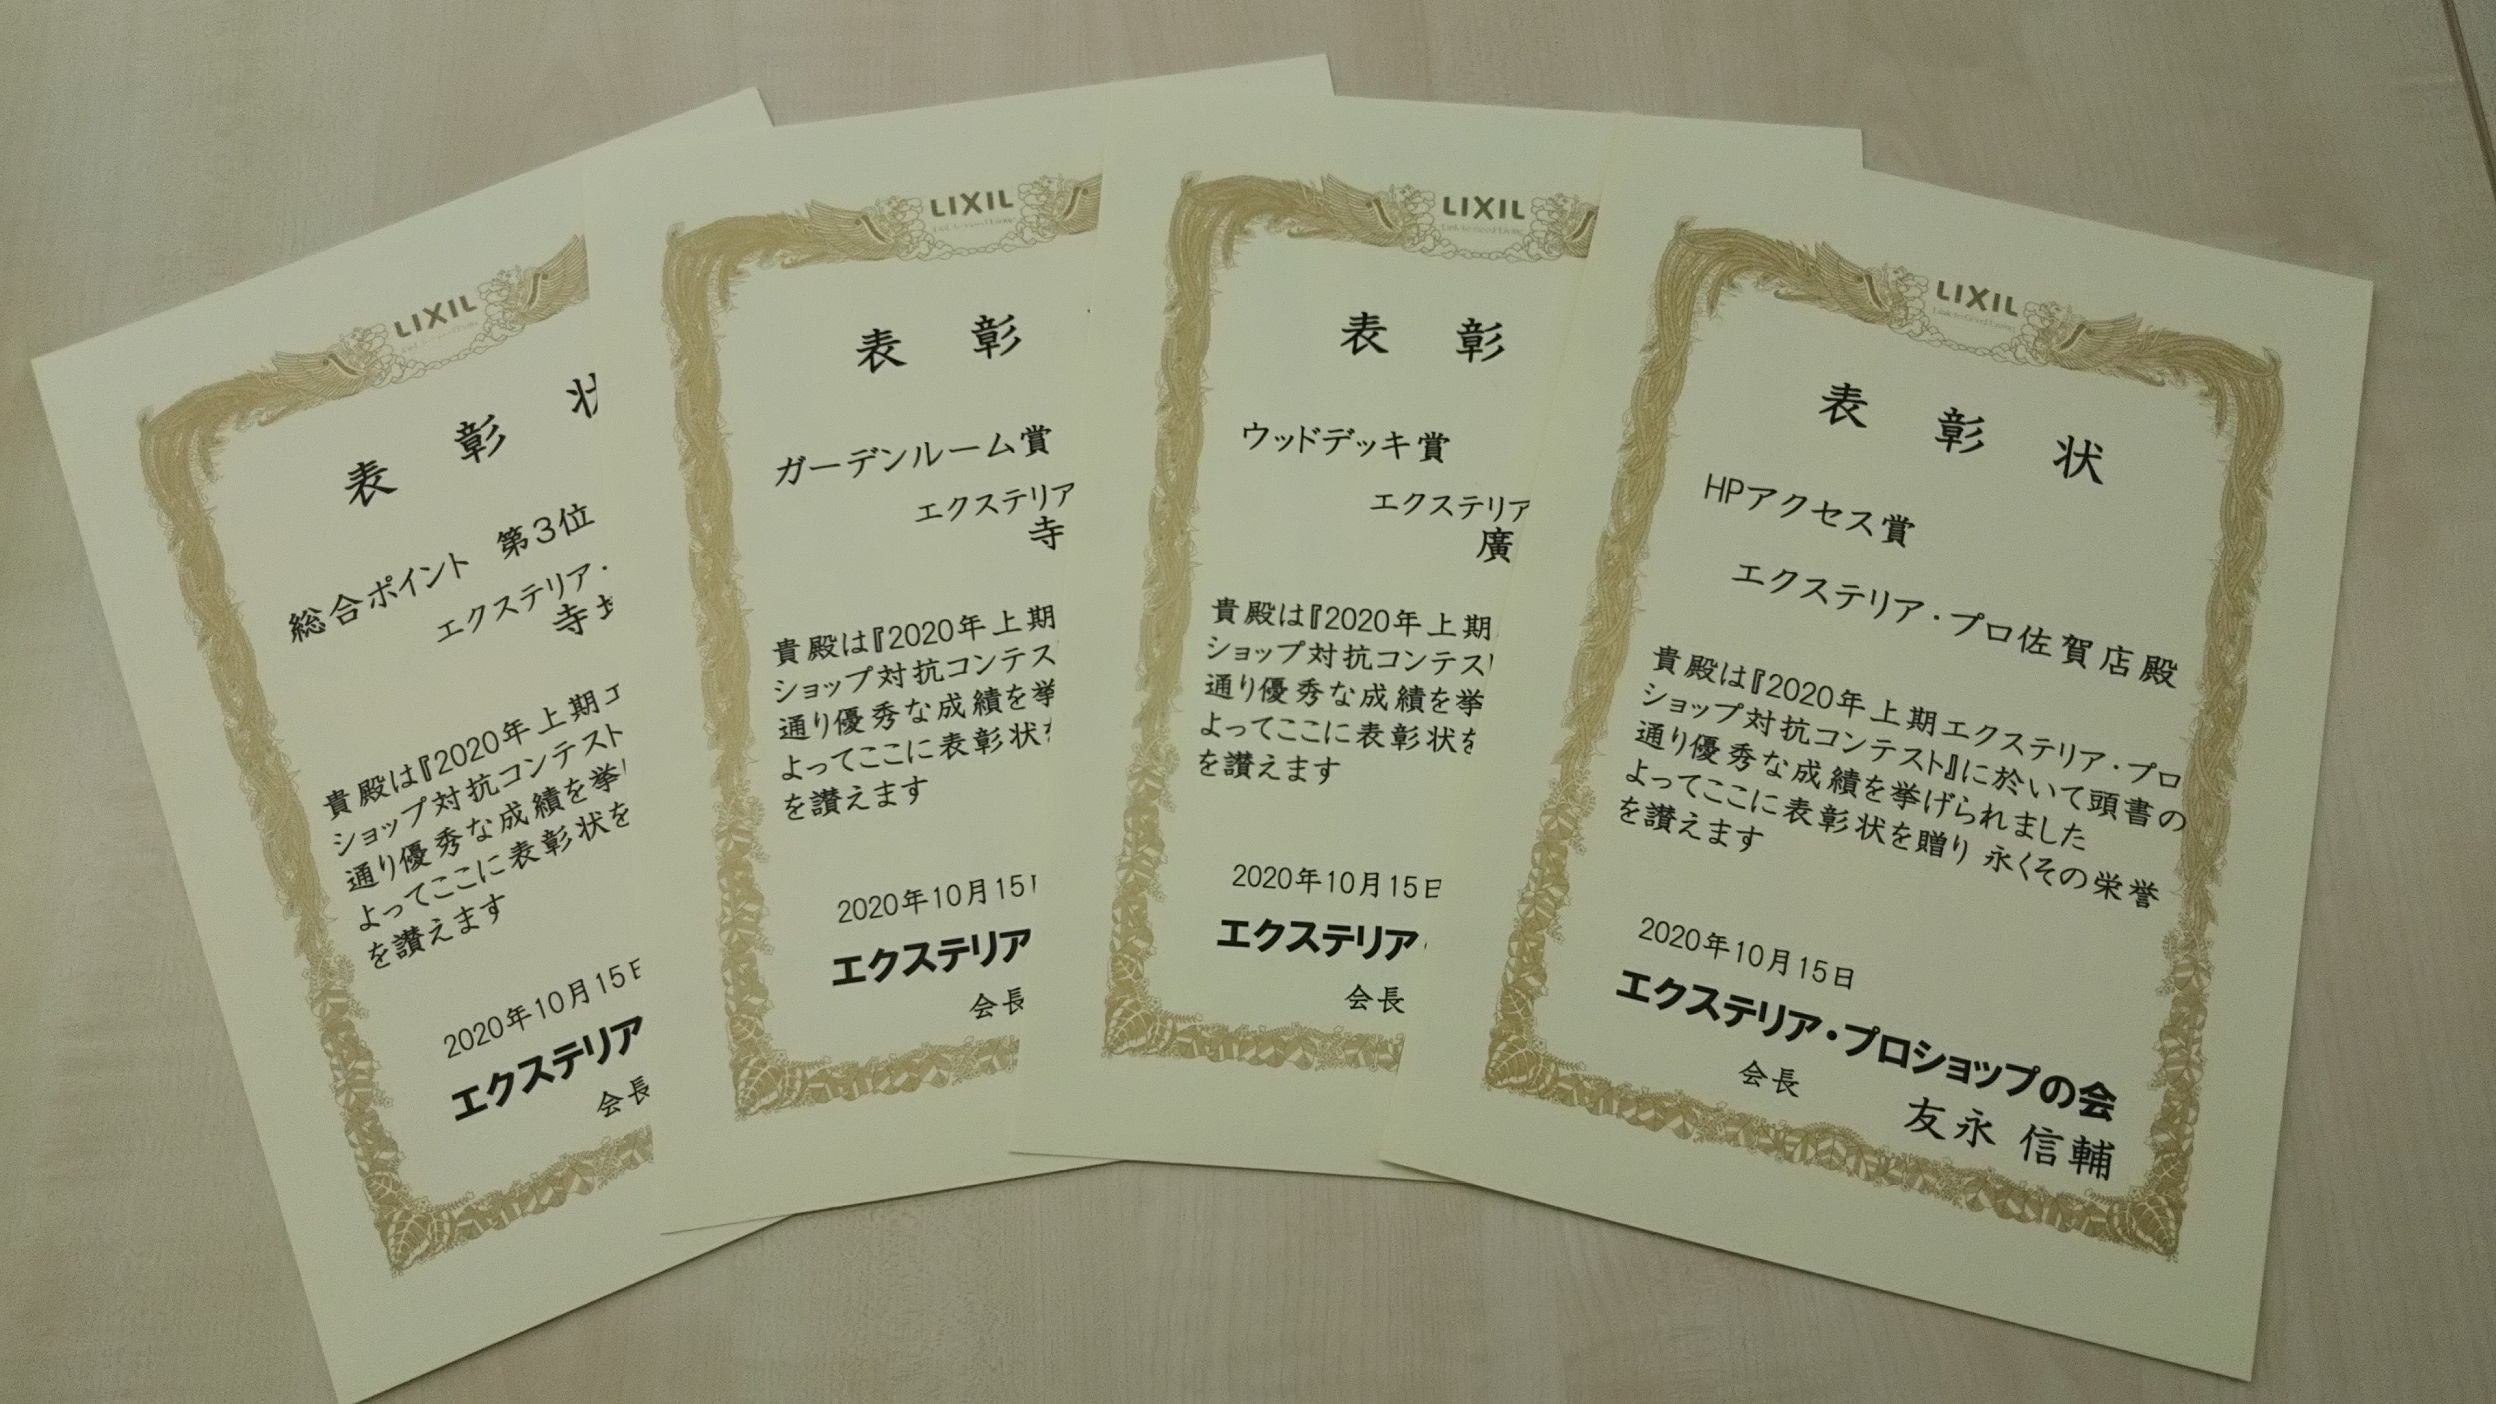 LIXIL
表彰状
総合ポイント 第3位
エクステリア・
寺
貴殿は『2020年上期エ
ショップ対抗コンテスト
通り優秀な成績を挙げ
よってここに表彰状を
を讃えます
2020年10月15日
エクステリア
会長
LIXIL
表彰
ガーデンルーム賞
エクステリア
寺
貴殿は『2020年上期
ショップ対抗コンテス
通り優秀な成績を挙
よってここに表彰状
を讃えます
2020年10月15日
エクステリア
会長
LIXIL
Link to Good Living
表彰
ウッドデッキ賞
エクステリア
廣
貴殿は『2020年上期
ショップ対抗コンテスト
通り優秀な成績を挙
よってここに表彰状を
を讃えます
2020年10月15日
エクステリア・
会長
LIXIL
Link to Good Living
表彰状
HPアクセス賞
エクステリア・プロ佐賀店殿
貴殿は『2020年上期エクステリア・プロ
ショップ対抗コンテスト』に於いて頭書の
通り優秀な成績を挙げられました
よってここに表彰状を贈り 永くその栄誉
を讃えます
2020年10月15日
エクステリア・プロショップの会
会長 友永 信輔